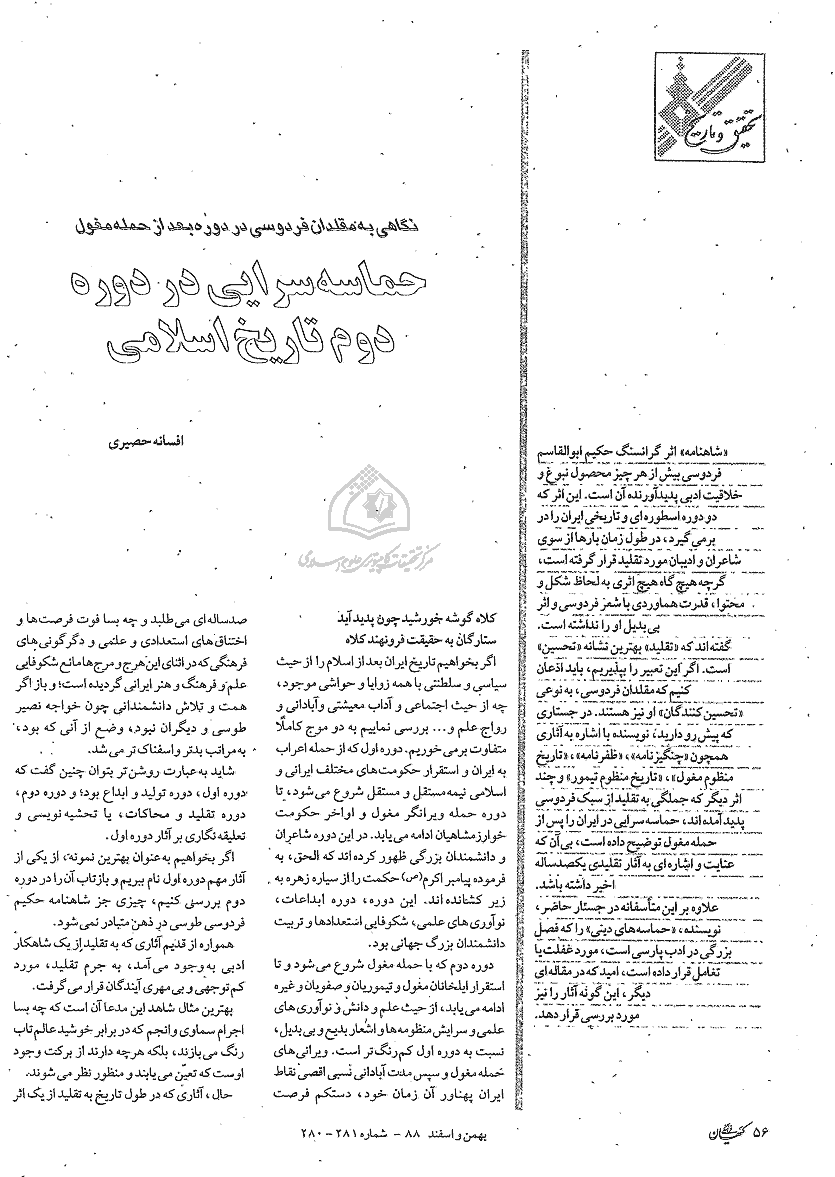 تحقیق و تاریخ
نگاهی به مقلدان فردوسی در دوره بعد از حمله مغول
حماسه‌سرایی در دوره
دوم تاریخ اسلامی
افسانه حصیری
«شاهنامه» اثر گرانسنگ حکیم ابوالقاسم
فردوسی بیش از هر چیز محصول نبوغ و
خلاقیت ادبی پدیدآورنده آن است. این اثر که
دو دوره اسطوره‌ای و تاریخی ایران را در
برمی‌گیرد، در طول زمان بارها از سوی
شاعران و ادیبان مورد تقلید قرار گرفته است،
گرچه هیچ گاه هیچ اثری به لحاظ شکل و
محتوا، قدرت هماوردی با شعر فردوسی و اثر
بی‌بدیل او را نداشته است.
گفته‌اند که «تقلید» بهترین نشانه «تحسین»
است. اگر این تعبیر را بپذیریم، باید اذعان
کنیم که مقلدان فردوسی، به نوعی
«تحسین کنندگان» او نیز هستند. در جستاری
که پیش رو دارید، نویسنده با اشاره به آثاری
همچون «چنگیزنامه»، «ظفرنامه»، «تاریخ
منظوم مغول»، «تاریخ منظوم تیمور» و چند
اثر دیگر که جملگی به تقلید از سبک فردوسی
پدید آمده‌اند، حماسه‌سرایی در ایران را پس از
حمله مغول توضیح داده است، بی‌آن که
عنایت و اشاره‌ای به آثار تقلیدی یکصدساله
اخیر داشته باشد.
علاوه بر این متأسفانه در جستار حاضر،
نویسنده، «حماسه‌های دینی» را که فصل
بزرگی در ادب پارسی است، مورد غفلت یا
تغافل قرار داده است، امید که در مقاله‌ای
دیگر، این گونه آثار را نیز
مورد بررسی قرار دهد.
کلاه گوشه خورشید چون پدید آید
ستارگان به حقیقت فرونهند کلاه
اگر بخواهیم تاریخ ایران بعد از اسلام را از حیث
سیاسی و سلطنتی با همه زوایا و حواشی موجود،
چه از حیث اجتماعی و آداب معیشتی و آبادانی و
رواج علم و... بررسی نماییم به دو موج کاملًا
متفاوت برمی‌خوریم. دوره اول که از حمله اعراب
به ایران و استقرار حکومت‌های مختلف ایرانی و
اسلامی نیمه مستقل و مستقل شروع می‌شود، تا
دوره حمله ویرانگر مغول و اواخر حکومت
خوارزمشاهیان ادامه می‌یابد. در این دوره شاعران
و دانشمندان بزرگی ظهور کرده‌اند که الحق، به
فرموده پیامبر اکرم(ص) حکمت را از سیاره زهره به
زیر کشانده‌اند. این دوره، دوره ابداعات،
نوآوری‌های علمی، شکوفایی استعدادها و تربیت
دانشمندان بزرگ جهانی بود.
دوره دوم که با حمله مغول شروع می‌شود و تا
استقرار ایلخانان مغول و تیموریان و صفویان و غیره
ادامه می‌یابد، از حیث علم و دانش و نوآوری‌های
علمی و سرایش منظومه‌ها و اشعار بدیع و بی‌بدیل،
نسبت به دوره اول کم‌رنگ‌تر است. ویرانی‌های
حمله مغول و سپس مدت آبادانی نسبی اقصی نقاط
ایران پهناور آن زمان خود، دستکم فرصت
صدساله‌ای می‌طلبد و چه بسا فوت فرصت‌ها و
اختناق‌های استعدادی و علمی و دگرگونی‌های
فرهنگی که در اثنای این هرج و مرج‌ها مانع شکوفایی
علم و فرهنگ و هنر ایرانی گردیده است؛ و باز اگر
همت و تلاش دانشمندانی چون خواجه نصیر
طوسی و دیگران نبود، وضع از آنی که بود،
به مراتب بدتر و اسفناک‌تر می‌شد.
شاید به عبارت روشن‌تر بتوان چنین گفت که
دوره اول، دوره تولید و ابداع بود؛ و دوره دوم،
دوره تقلید و محاکات، یا تحشیه نویسی و
تعلیقه نگاری بر آثار دوره اول.
اگر بخواهیم به عنوان بهترین نمونه، از یکی از
آثار مهم دوره اول نام ببریم و بازتاب آن را در دوره
دوم بررسی کنیم، چیزی جز شاهنامه حکیم
فردوسی طوسی در ذهن متبادر نمی‌شود.
همواره از قدیم آثاری که به تقلید از یک شاهکار
ادبی به وجود می‌آمد، به جرم تقلید، مورد
کم توجهی و بی مهری آیندگان قرار می‌گرفت.
بهترین مثال شاهد این مدعا آن است که چه بسا
اجرام سماوی و انجم که در برابر خوشید عالم تاب
رنگ می‌بازند، بلکه هرچه دارند از برکت وجود
اوست که تعیّن می‌یابند و منظور نظر می‌شوند.
حال، آثاری که در طول تاریخ به تقلید از یک اثر
مرکز تحقیقات کامپیوتری علوم اسلامی
۵۶ کیهان فرهنگی
بهمن و اسفند ۸۸ - شماره ۲۸۱ - ۲۸۰